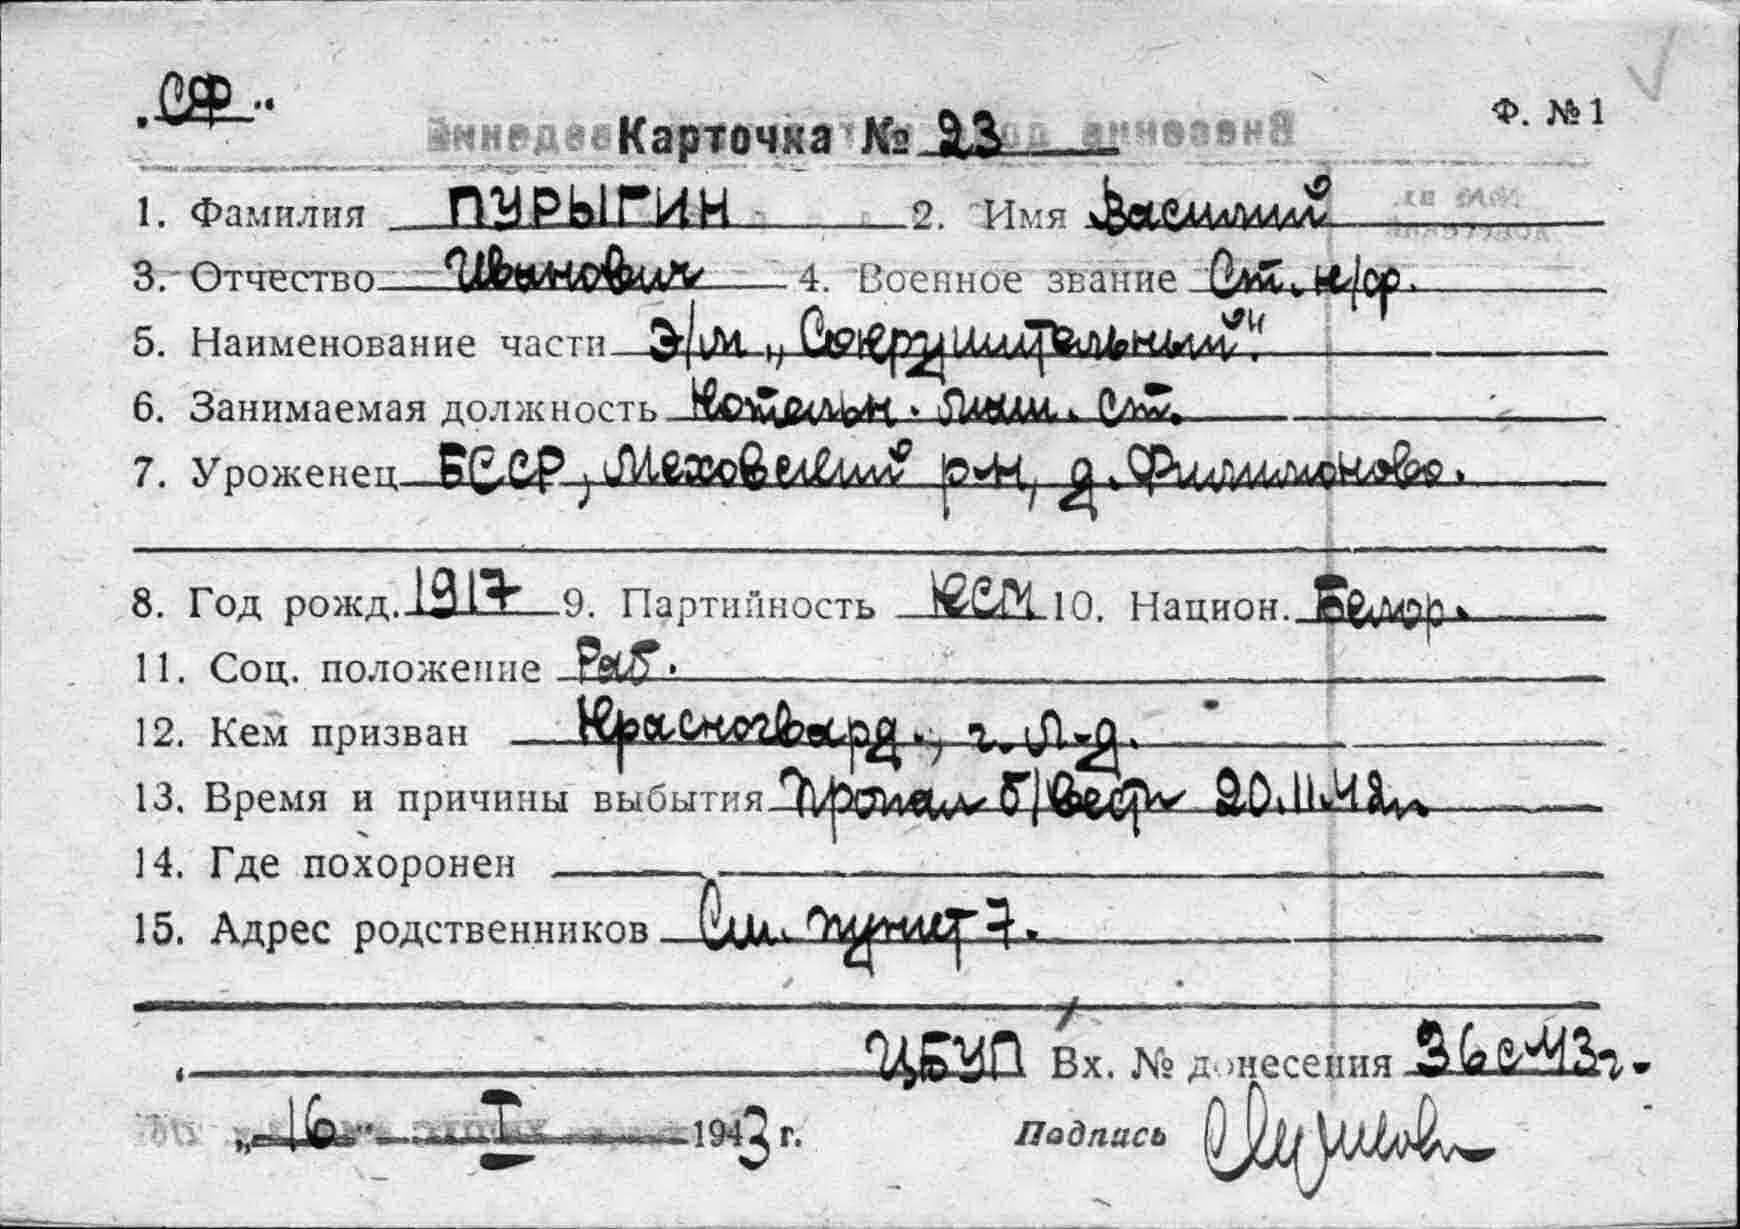 „СФ"
Ф. № 1
Карточка № 23
1. Фамилия ПУРЫГИН 2. Имя Василий
3. Отчество Иванович 4. Военное звание Ст. к/ф.
5. Наименование части Э/м „Сокрушительный"
6. Занимаемая должность Котельн. маш. ст.
7. Уроженец БССР, Меховский р-н, д. Филимоново.
8. Год рожд. 1917 9. Партийность КСМ 10. Национ. Белор.
11. Соц. положение Раб.
12. Кем призван Красногвард., г. Л-д.
13. Время и причины выбытия Пропал б/вести 20.11.42г.
14. Где похоронен
15. Адрес родственников См. пункт 7.
ЦБУП Вх. № донесения 36с 43г.
„16" I 1943 г. Подпись